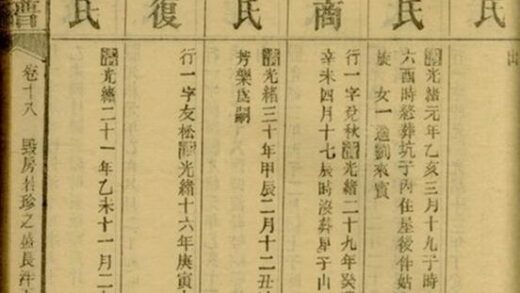 民
出
民
清光緒元年乙亥三月十九子時
六酉時 葬坑子內住屋後件姑
女一適劉來賓
商
行一字 秋清光緒二十九年癸
辛未四月十七辰時沒葬 子山
民
清光緒三十年甲辰二月十二丑
芳樂爲嗣
復
行一字友松清光緒十六年庚寅
民
清光緒二十一年乙未十一月二
卷十八
房 珍之 長